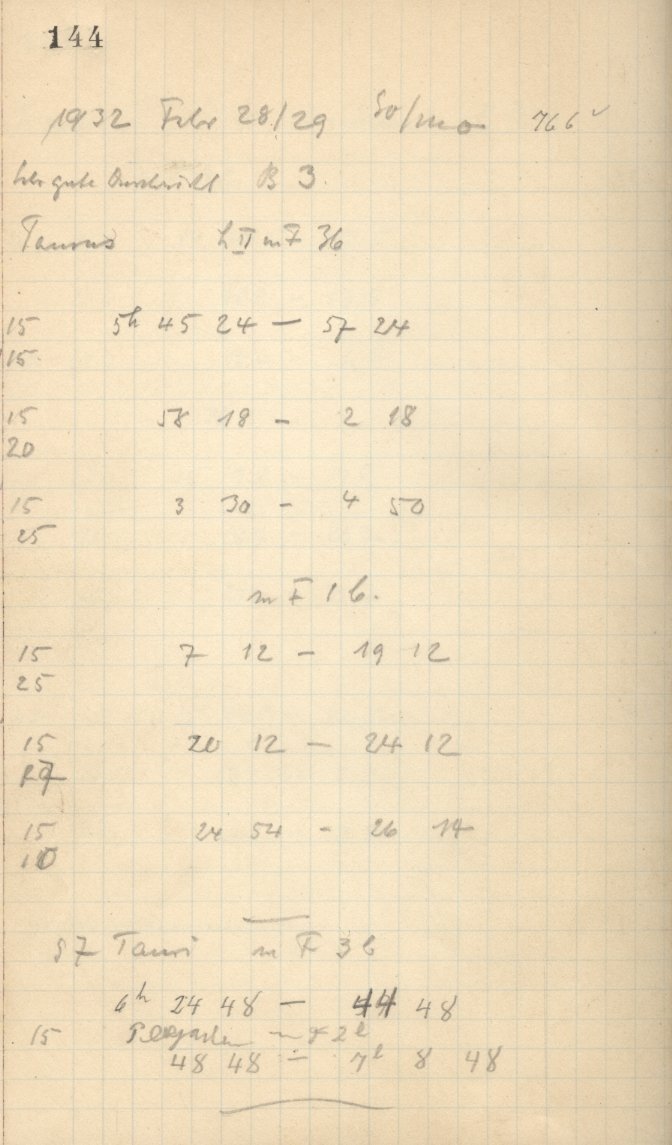 144
1932 Febr 28/29 So/Mo 766
Sehr gute B 3.
Taurus h II m F 36
15 5h 45 24 — 57 24
15
15 58 18 - 2 18
20
15 3 30 - 4 50
25
m F 1 b.
15 7 12 - 19 12
25
15 20 12 — 24 12
15 24 54 - 26 14
10
97 Tauri m F 3 b
6h 24 48 — 44 48
15 Plejaden m F 2
48 48 — 7h 8 48